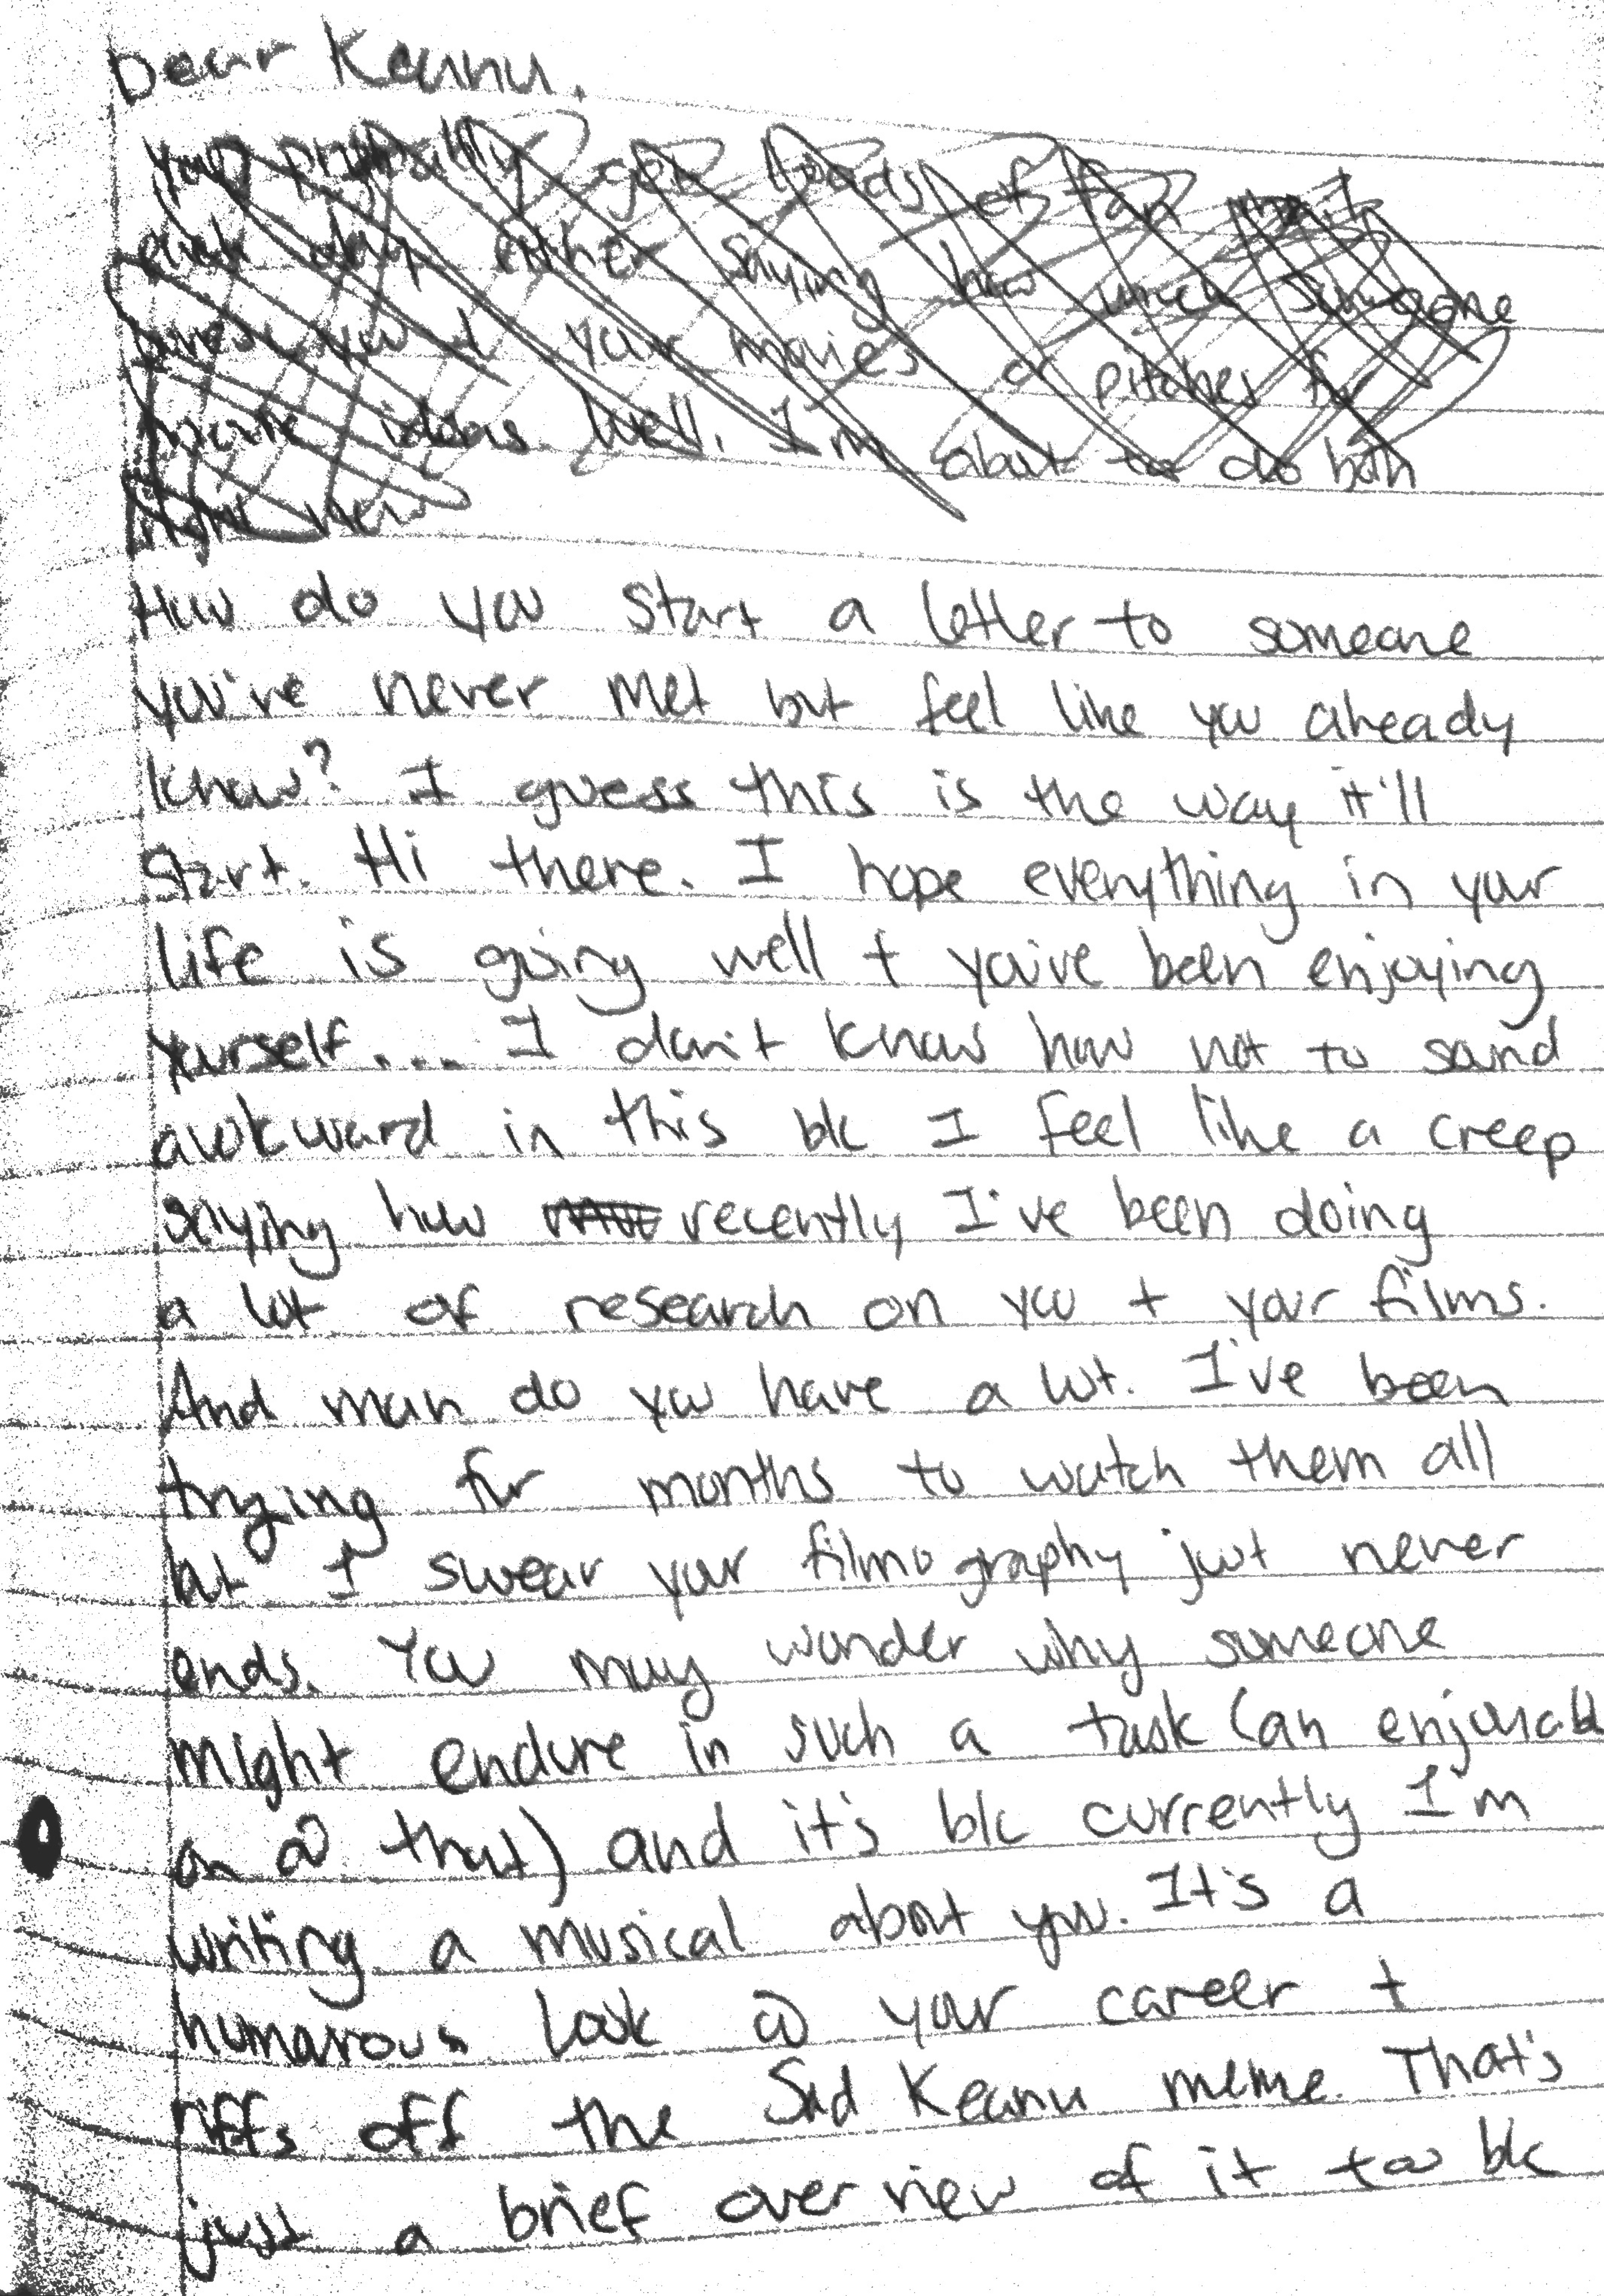 Dear Keanu,
You probably get loads of fan mail
each day either saying how much someone
loves you & your movies or pitches for
movie ideas. Well, I'm about to do both
right here
How do you start a letter to someone
you've never met but feel like you already
know? I guess this is the way it'll
start. Hi there. I hope everything in your
life is going well + you've been enjoying
yourself.... I don't know how not to sound
awkward in this b/c I feel like a creep
saying how recently I've been doing
a lot of research on you + your films.
And man do you have a lot. I've been
trying for months to watch them all
but I swear your filmography just never
ends. You may wonder why someone
might endure in such a task (an enjoyable
on @ that) and it's b/c currently I'm
writing a musical about you. It's a
humorous look @ your career +
riffs off the Sad Keanu meme. That's
just a brief overview of it too b/c